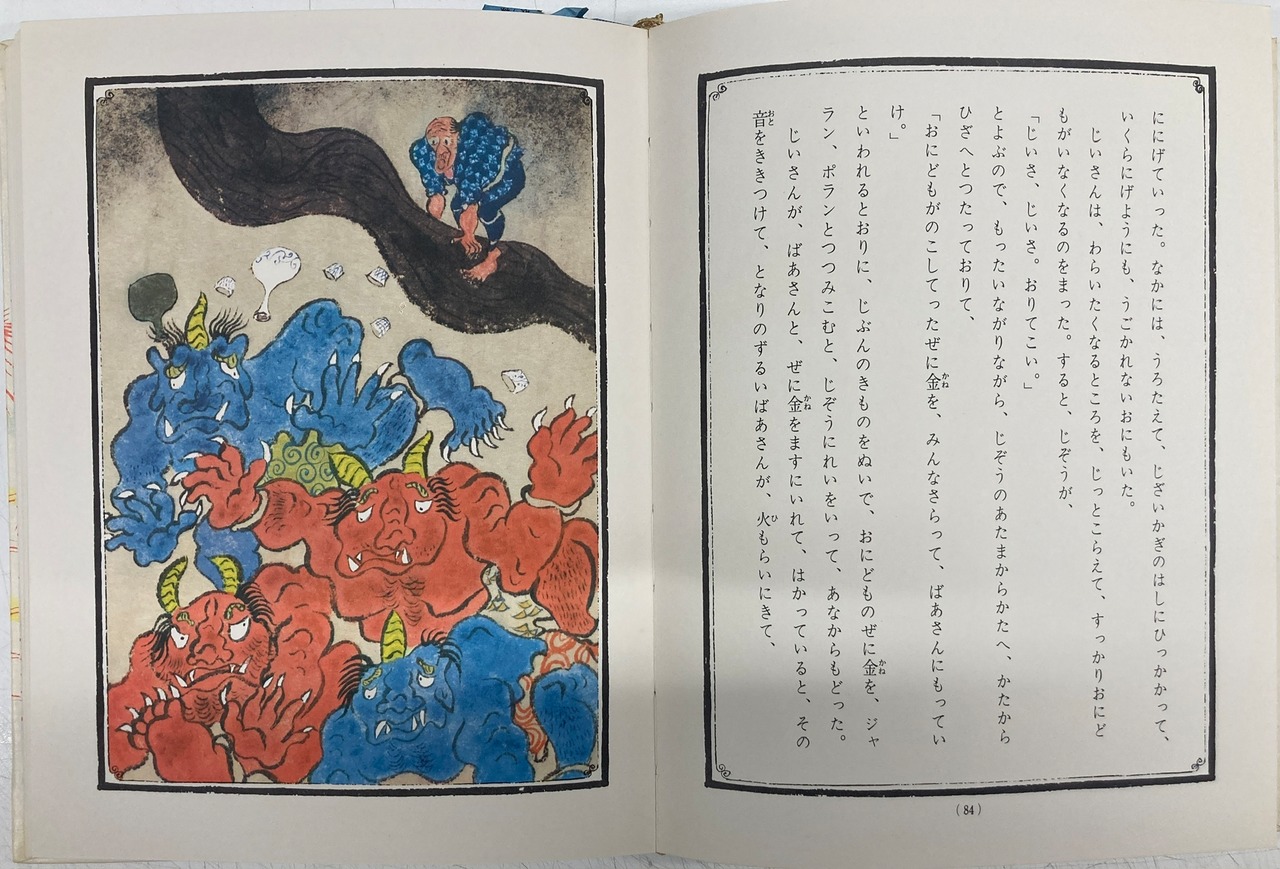 ににげていった。なかには、うろたえて、じざいかぎのはしにひっかかって、
いくらにげようにも、うごかれないおにもいた。
じいさんは、わらいたくなるところを、じっとこらえて、すっかりおにど
もがいなくなるのをまった。すると、じぞうが、
「じいさ、じいさ。おりてこい。」
とよぶので、もったいながりながら、じぞうのあたまからかたへ、かたから
ひざへとつたっておりて、
「おにどもがのこしてったぜに金を、みんなさらって、ばあさんにもってい
け。」
といわれるとおりに、じぶんのきものをぬいで、おにどものぜに金を、ジャ
ラン、ポランとつつみこむと、じぞうにれいをいって、あなからもどった。
じいさんが、ばあさんと、ぜに金をますにいれて、はかっていると、その
音をききつけて、となりのずるいばあさんが、火もらいにきて、
(84)